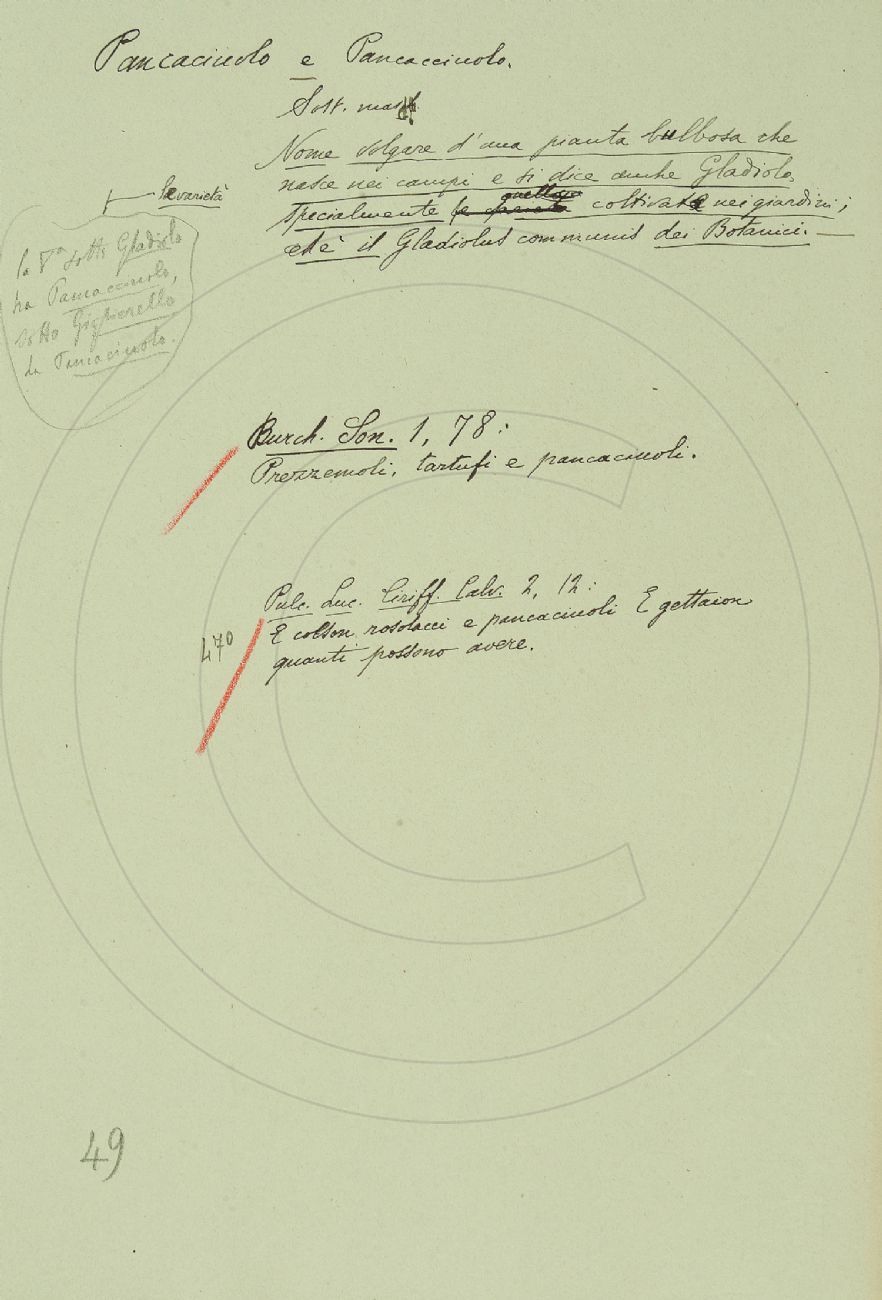 Pancaciuolo e Pancacciuolo.
Sost. masch.
Nome volgare d'una pianta bulbosa che
nasce nei campi e si dice anche Gladiolo,
quella
specialmente la varietà coltivata nei giardini;
ch'è il Gladiolus communis dei Botanici.
la varietà
la Vª sotto Gladiolo
ha Pancacciuolo,
sotto Giglierello
da Pancaciuolo.
Burch. Son. 1, 78:
Prezzemoli, tartufi e pancaciuoli.
Pulc. Luc. Ciriff. Calv. 2, 12:
E colson rosolacci e pancaciuoli E gettaron
470
quanti possono avere.
49